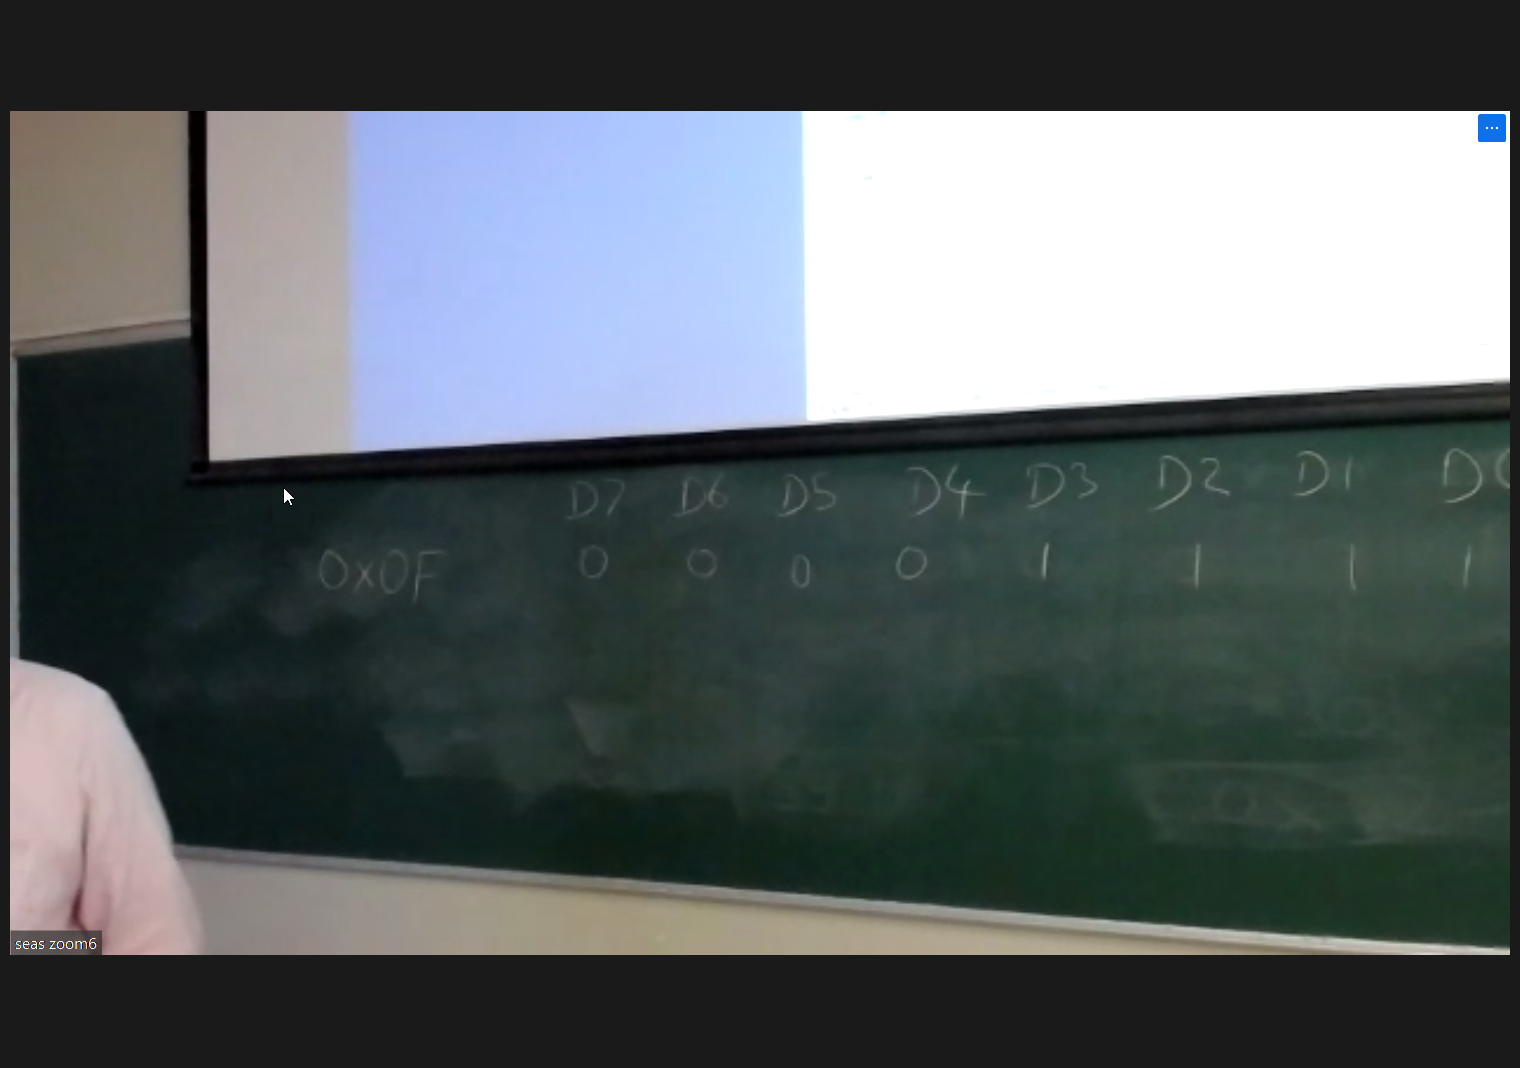 D7 D6 D5 D4 D3 D2 D1 D0
0x0F 0 0 0 0 1 1 1 1
seas zoom6